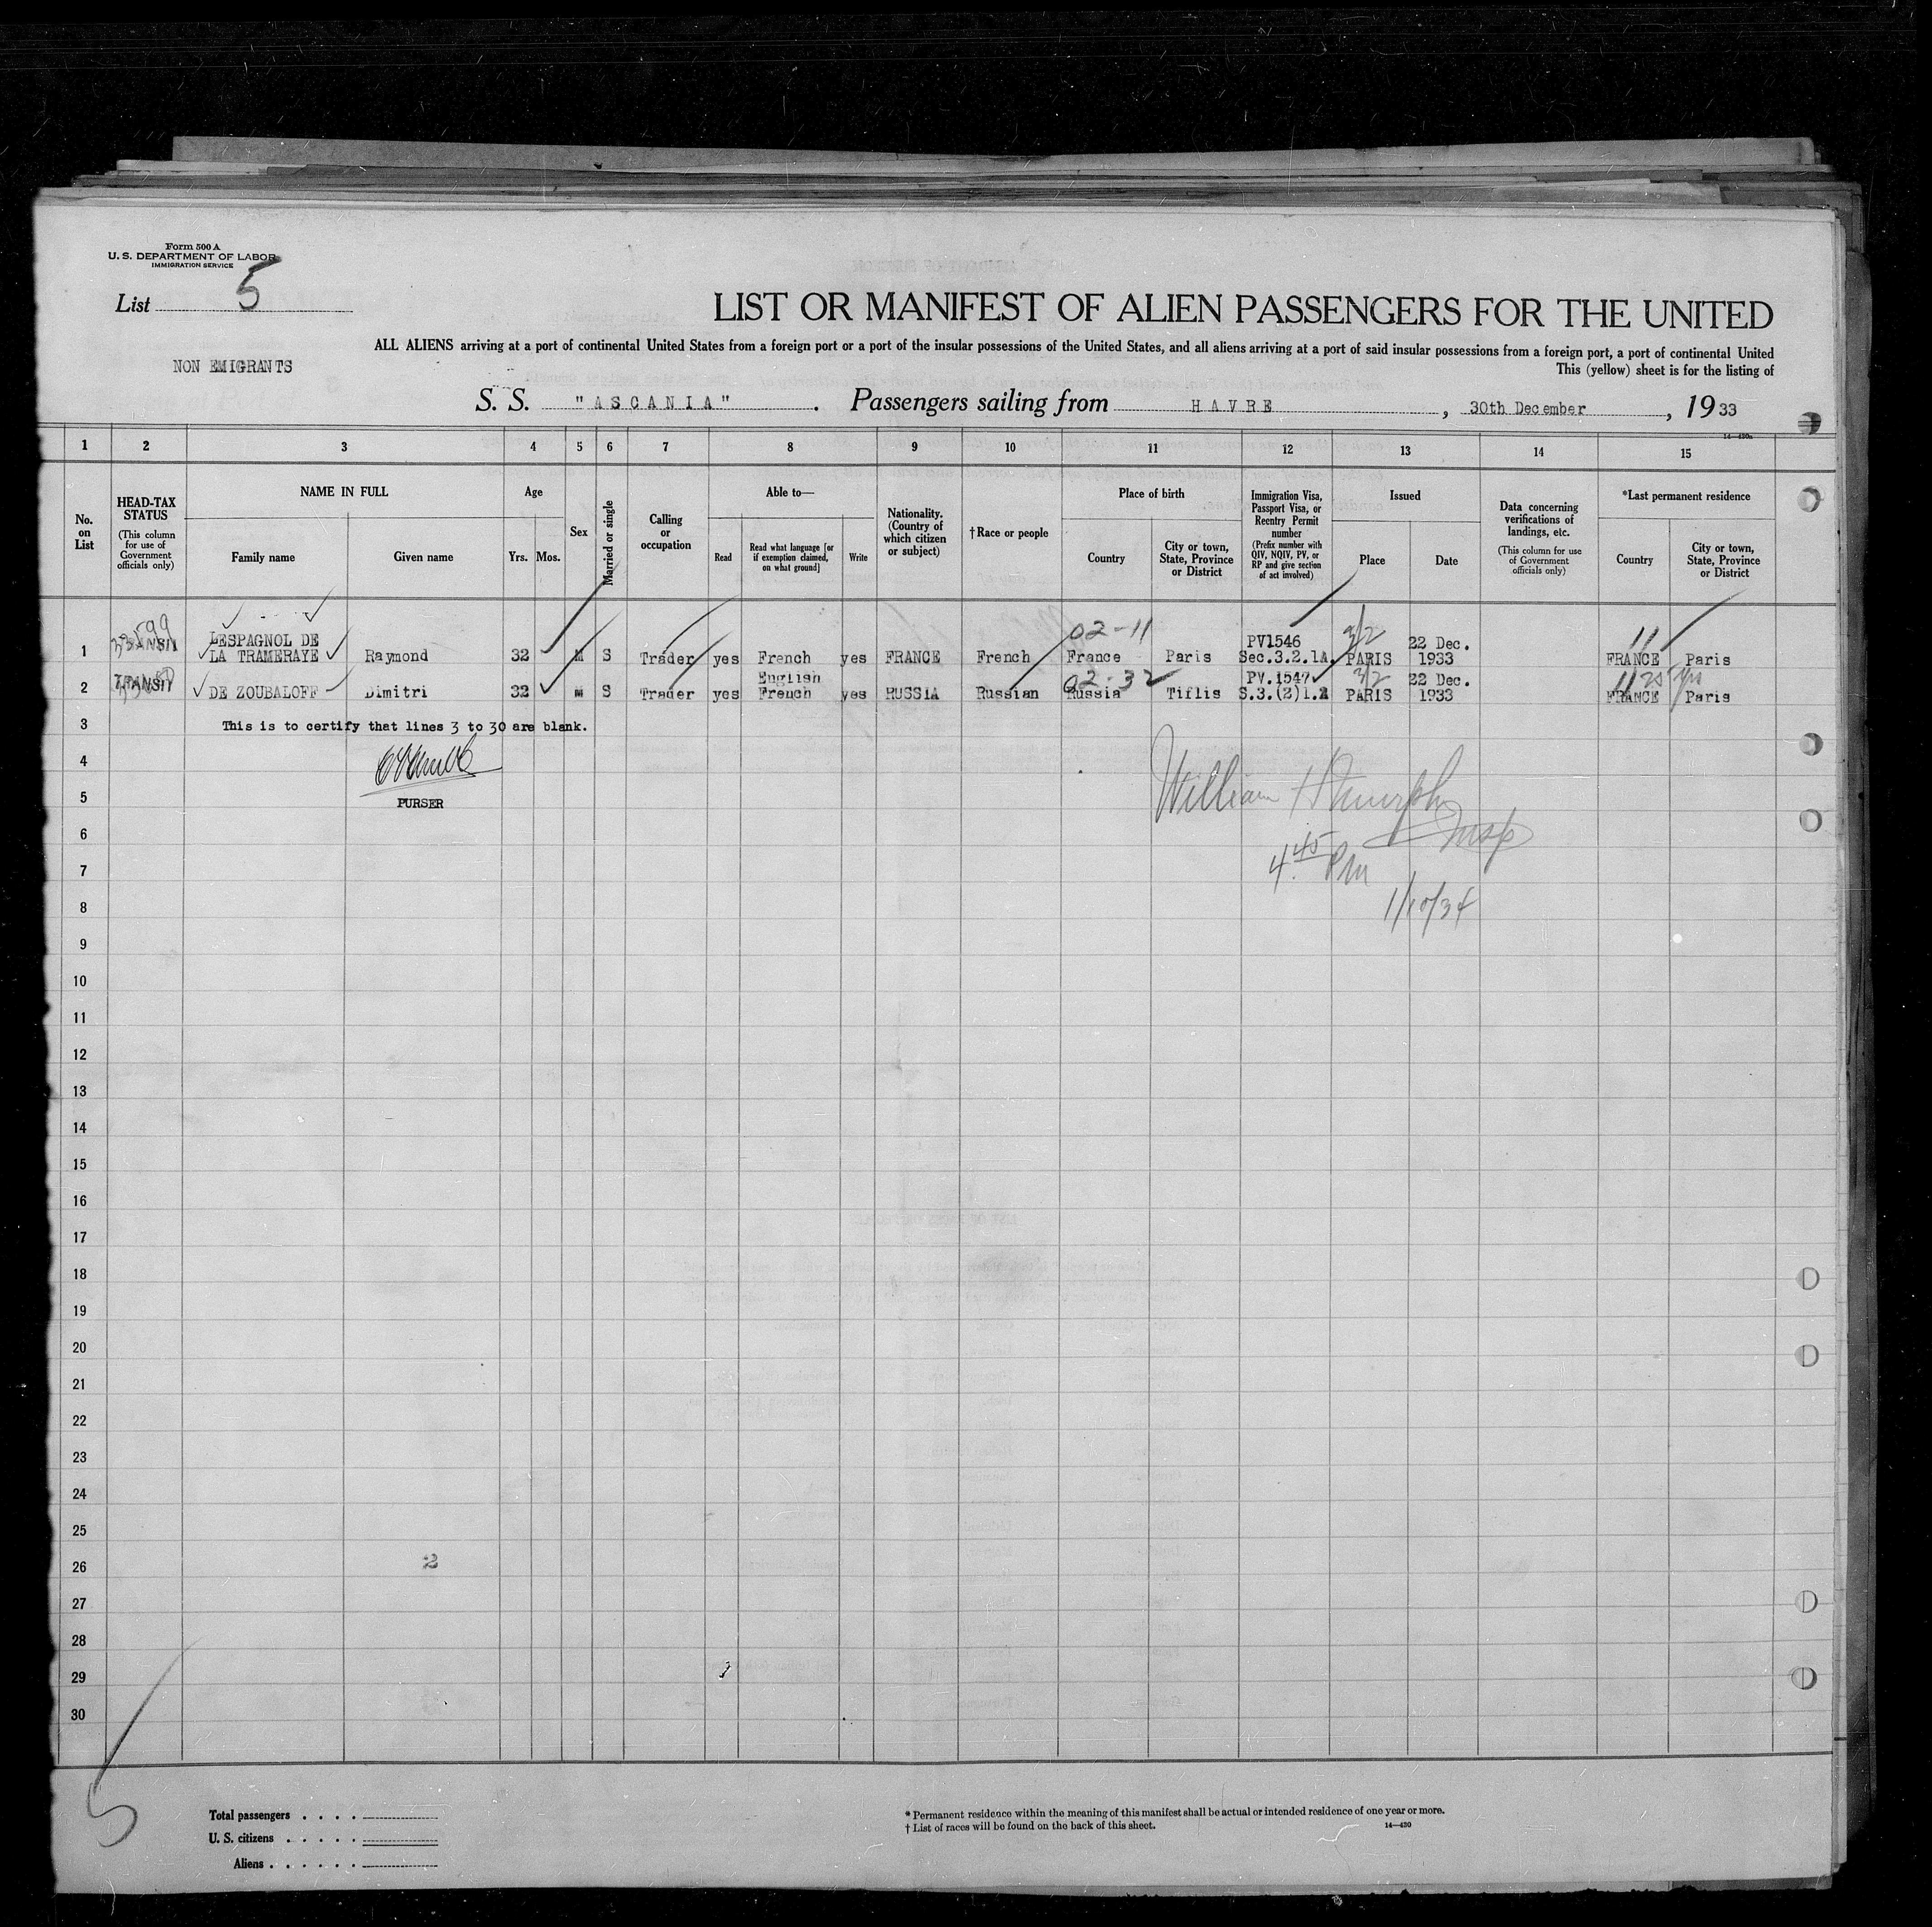 Form 500 A
U. S. DEPARTMENT OF LABOR
IMMIGRATION SERVICE
List 5
LIST OR MANIFEST OF ALIEN PASSENGERS FOR THE UNITED
ALL ALIENS arriving at a port of continental United States from a foreign port or a port of the insular possessions of the United States, and all aliens arriving at a port of said insular possessions from a foreign port, a port of continental United
NON EMIGRANTS
This (yellow) sheet is for the listing of
S. S. "ASCANIA". Passengers sailing from HAVRE, 30th December, 1933
14—430a
1 2 3 4 5 6 7 8 9 10 11 12 13 14 15
No. on List
HEAD-TAX STATUS
(This column for use of Government officials only)
NAME IN FULL
Family name
Given name
Age
Yrs.
Mos.
Sex
Married or single
Calling or occupation
Able to—
Read
Read what language [or if exemption claimed, on what ground]
Write
Nationality. (Country of which citizen or subject)
†Race or people
Place of birth
Country
City or town, State, Province or District
Immigration Visa, Passport Visa, or Reentry Permit number
(Prefix number with QIV, NQIV, PV, or RP and give section of act involved)
Issued
Place
Date
Data concerning verifications of landings, etc.
(This column for use of Government officials only)
*Last permanent residence
Country
City or town, State, Province or District
02-11
TRANSIT LESPAGNOL DE PV1546 3/2 22 Dec. 11
1 LA TRAMERAYE Raymond 32 M S Trader yes French yes FRANCE French France Paris Sec.3.2.1A. PARIS 1933 FRANCE Paris
TRANSIT English 02-32 PV.1547 3/2 22 Dec. 11
2 DE ZOUBALOFF Dimitri 32 M S Trader yes French yes RUSSIA Russian Russia Tiflis S.3.(2)1.A PARIS 1933 FRANCE Paris
3 This is to certify that lines 3 to 30 are blank.
4
5 PURSER
William H Murphy
Insp
6
4.45 PM
7
8 1/10/34
9
10
11
12
13
14
15
16
17
18
19
20
21
22
23
24
25
26 2
27
28
29
30
5
Total passengers . . . .
U. S. citizens . . . . .
Aliens . . . . . .
* Permanent residence within the meaning of this manifest shall be actual or intended residence of one year or more.
† List of races will be found on the back of this sheet.
14—430